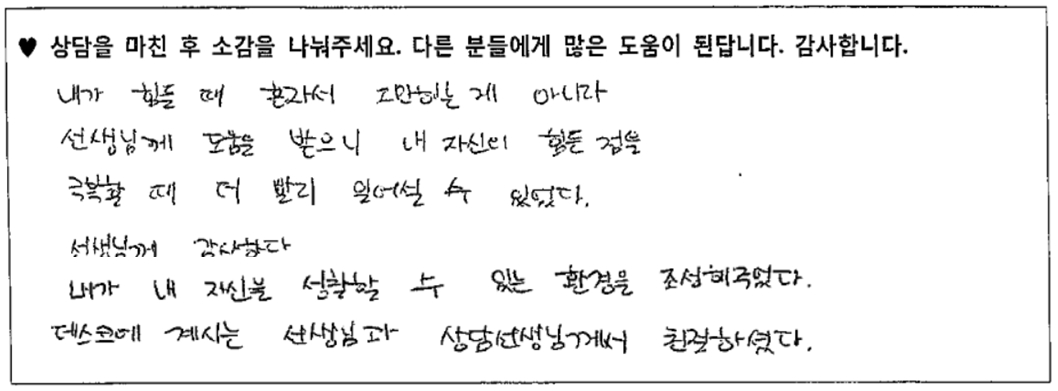 ♥ 상담을 마친 후 소감을 나눠주세요. 다른 분들에게 많은 도움이 된답니다. 감사합니다.
내가 힘들 때 혼자서 고민하는 게 아니라
선생님께 도움을 받으니 내 자신이 힘든 점을
극복할 때 더 빨리 일어설 수 있었다.
선생님께 감사하다
내가 내 자신을 성찰할 수 있는 환경을 조성해주었다.
데스크에 계시는 선생님과 상담선생님께서 친절하셨다.